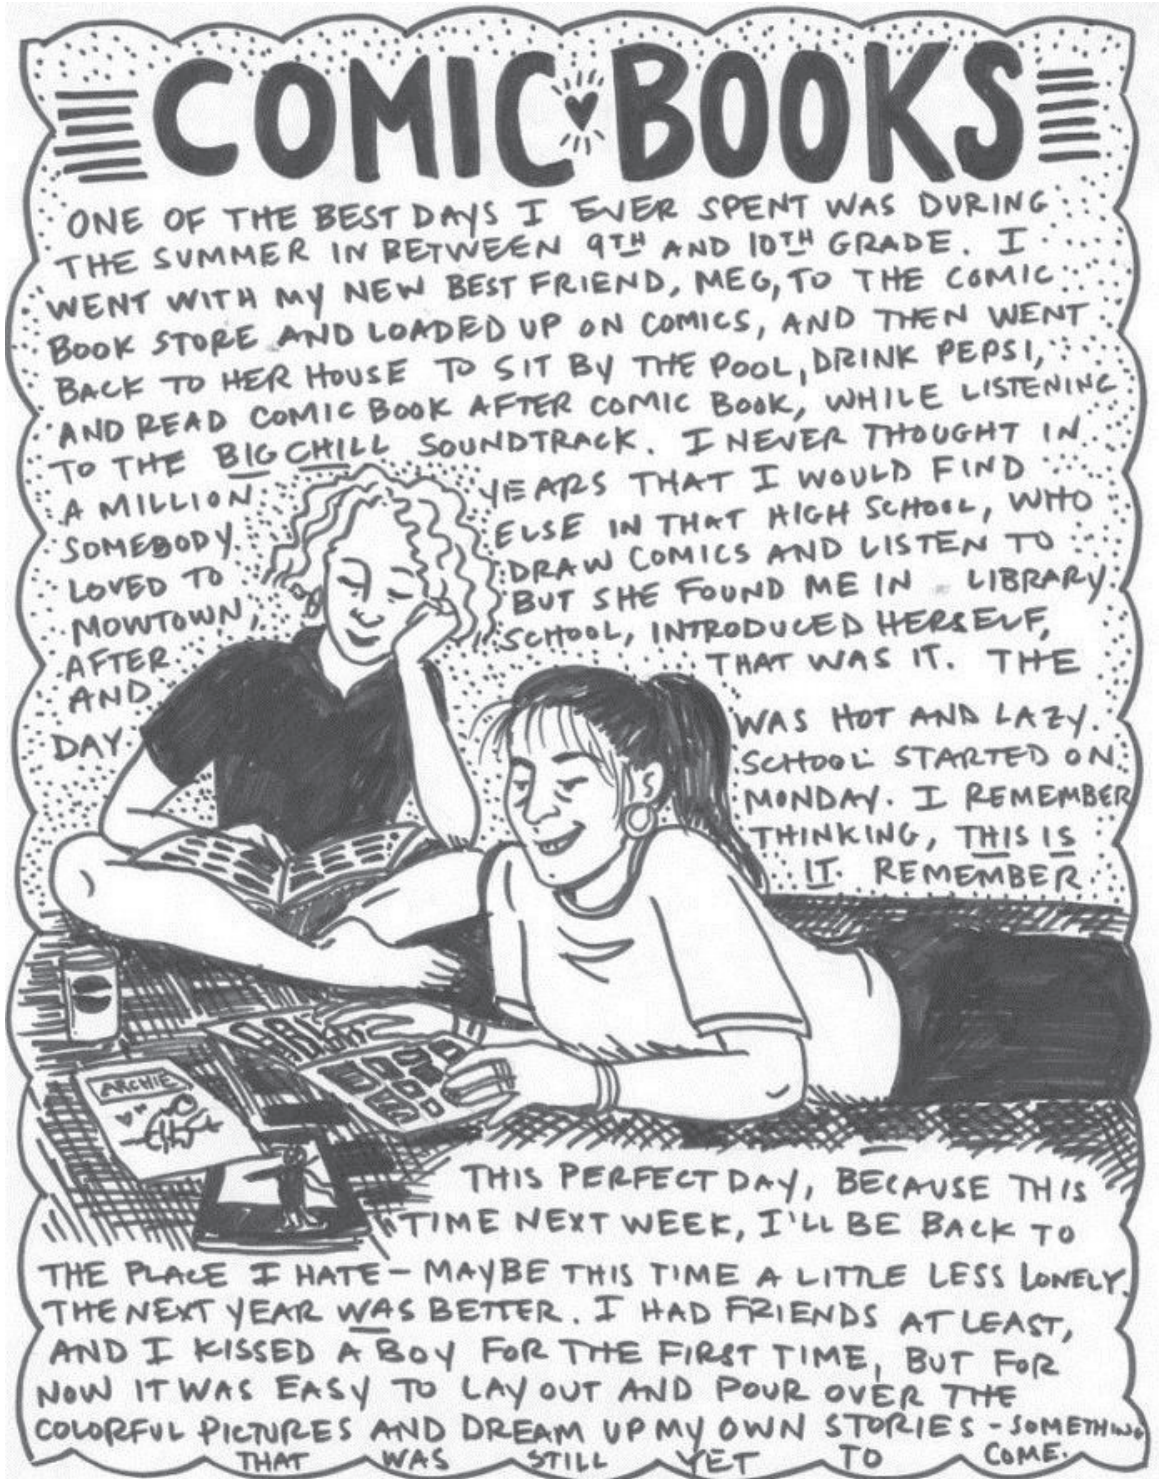 COMIC BOOKS
ONE OF THE BEST DAYS I EVER SPENT WAS DURING
THE SUMMER IN BETWEEN 9TH AND 10TH GRADE. I
WENT WITH MY NEW BEST FRIEND, MEG, TO THE COMIC
BOOK STORE AND LOADED UP ON COMICS, AND THEN WENT
BACK TO HER HOUSE TO SIT BY THE POOL, DRINK PEPSI,
AND READ COMIC BOOK AFTER COMIC BOOK, WHILE LISTENING
TO THE BIG CHILL SOUNDTRACK. I NEVER THOUGHT IN
A MILLION YEARS THAT I WOULD FIND
SOMEBODY ELSE IN THAT HIGH SCHOOL, WHO
LOVED TO DRAW COMICS AND LISTEN TO
MOWTOWN, BUT SHE FOUND ME IN LIBRARY
AFTER SCHOOL, INTRODUCED HERSELF,
AND THAT WAS IT. THE
DAY WAS HOT AND LAZY.
SCHOOL STARTED ON
MONDAY. I REMEMBER
THINKING, THIS IS
IT. REMEMBER
ARCHIE
THIS PERFECT DAY, BECAUSE THIS
TIME NEXT WEEK, I'LL BE BACK TO
THE PLACE I HATE - MAYBE THIS TIME A LITTLE LESS LONELY.
THE NEXT YEAR WAS BETTER. I HAD FRIENDS AT LEAST,
AND I KISSED A BOY FOR THE FIRST TIME, BUT FOR
NOW IT WAS EASY TO LAY OUT AND POUR OVER THE
COLORFUL PICTURES AND DREAM UP MY OWN STORIES - SOMETHING
THAT WAS STILL YET TO COME.